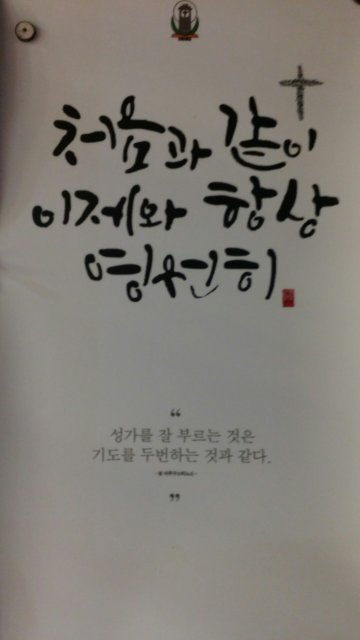 처음과 같이
이제와 항상
영원히
“
성가를 잘 부르는 것은
기도를 두번하는 것과 같다.
”